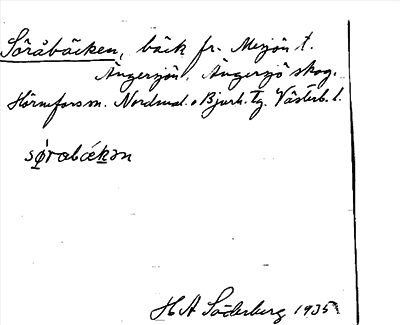 Söråbäcken, bäck fr. Mesjön t.
Ängersjön, Ängersjö skog.
Hörnefors sn. Nordmal. o Bjurh. tg. Västerb. l.
H A Söderberg 1935